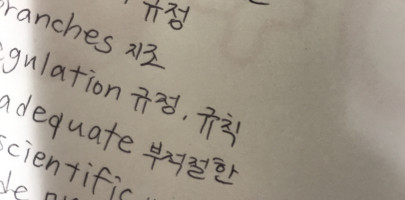 규정
ranches 지조
gulation 규정, 규칙
adequate 부적절한
scientific
de